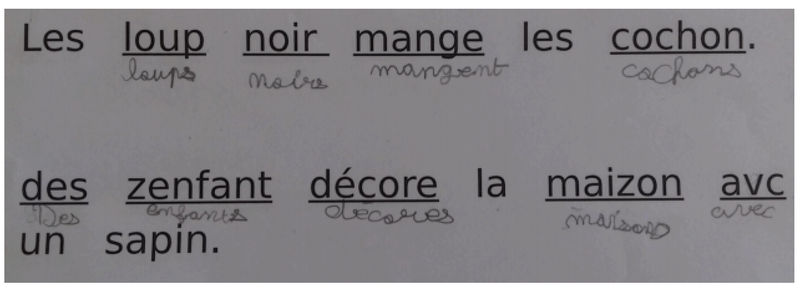 Les loup noir mange les cochon.
loups noirs mangent cochons
des zenfant décore la maizon avc
Des enfants décores maison avec
un sapin.